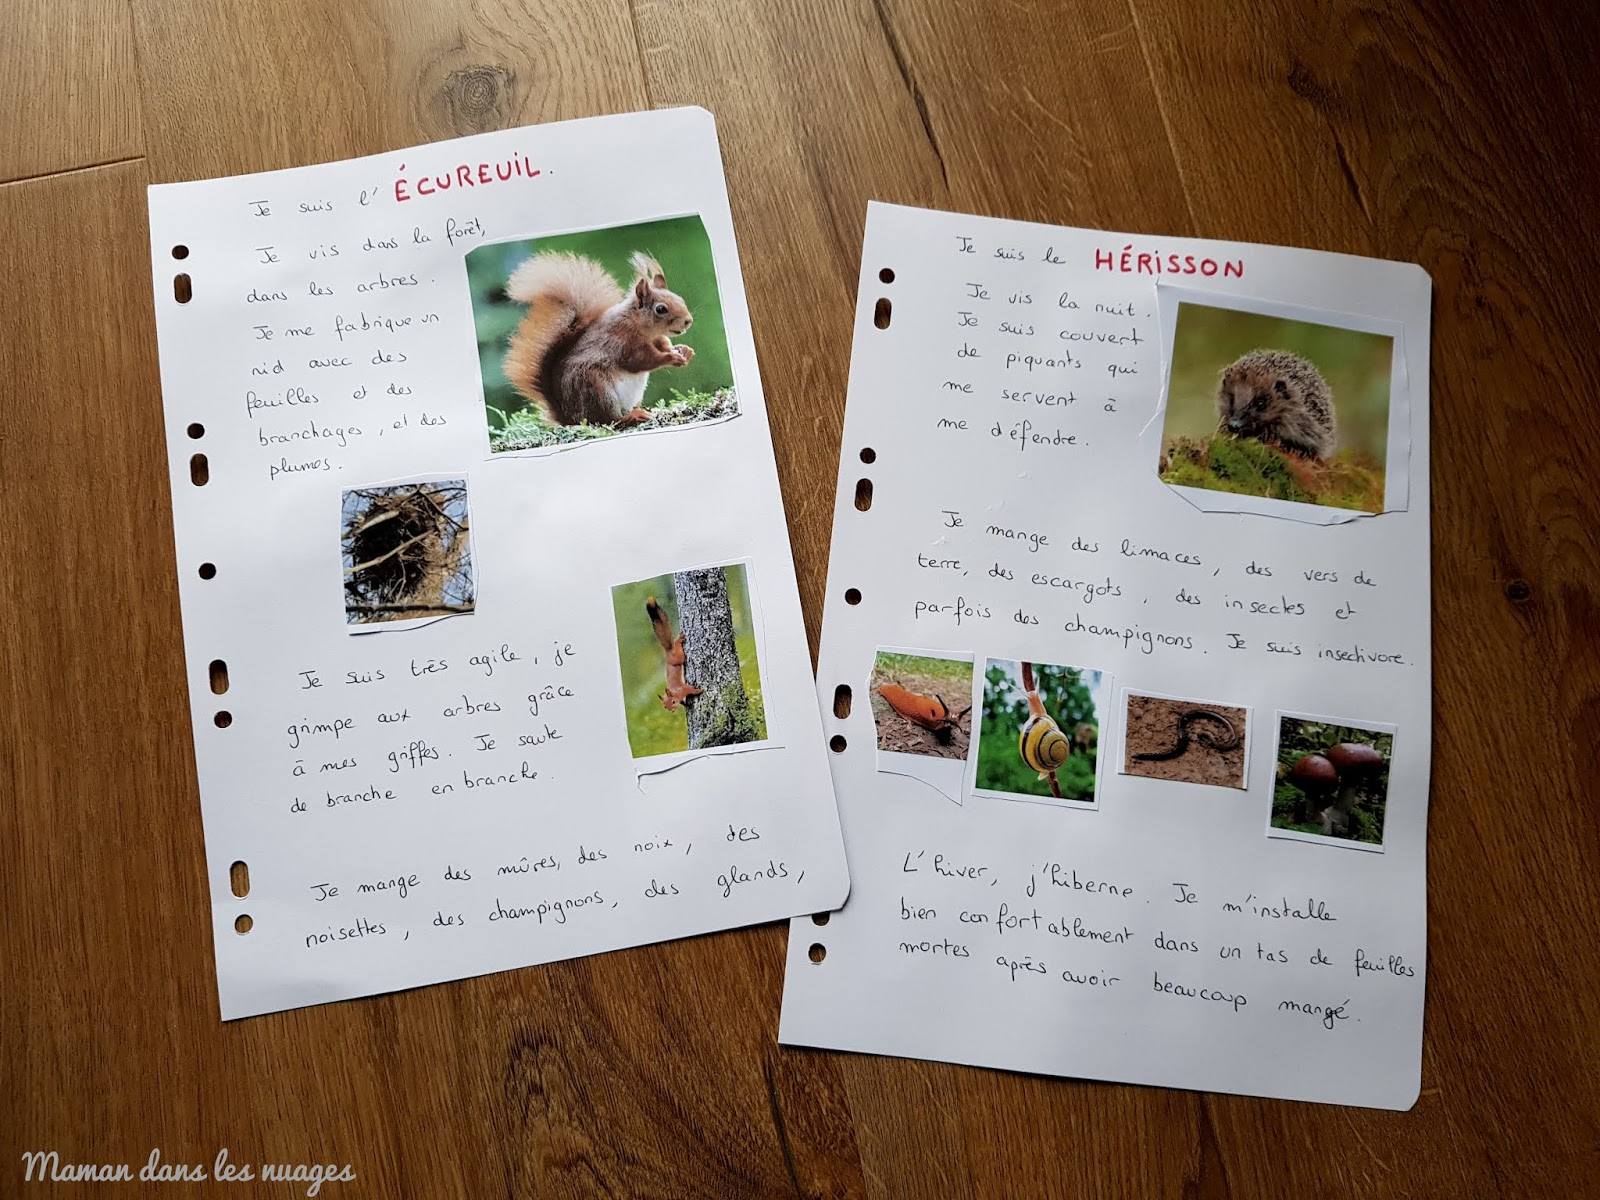 Je suis l'ÉCUREUIL.
Je vis dans la forêt,
dans les arbres.
Je me fabrique un
nid avec des
feuilles et des
branchages, et des
plumes.
Je suis très agile, je
grimpe aux arbres grâce
à mes griffes. Je saute
de branche en branche.
Je mange des mûres, des noix, des
noisettes, des champignons, des glands,
Je suis le HÉRISSON
Je vis la nuit.
Je suis couvert
de piquants qui
me servent à
me défendre.
Je mange des limaces, des vers de
terre, des escargots, des insectes et
parfois des champignons. Je suis insectivore.
L'hiver, j'hiberne. Je m'installe
bien confortablement dans un tas de feuilles
mortes après avoir beaucoup mangé.
Maman dans les nuages